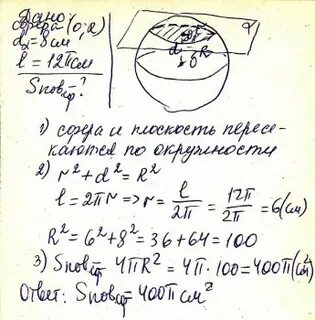 Дано:
сфера (O; R)
d = 8 см
l = 12π см
Sпов сф - ?
α
r
d
R
O
1) сфера и плоскость пересе-
каются по окружности
2) r² + d² = R²
l = 2πr => r = l/2π = 12π/2π = 6(см)
R² = 6² + 8² = 36 + 64 = 100
3) Sпов сф = 4πR² = 4π · 100 = 400π(см²)
Ответ: Sпов сф = 400π см²